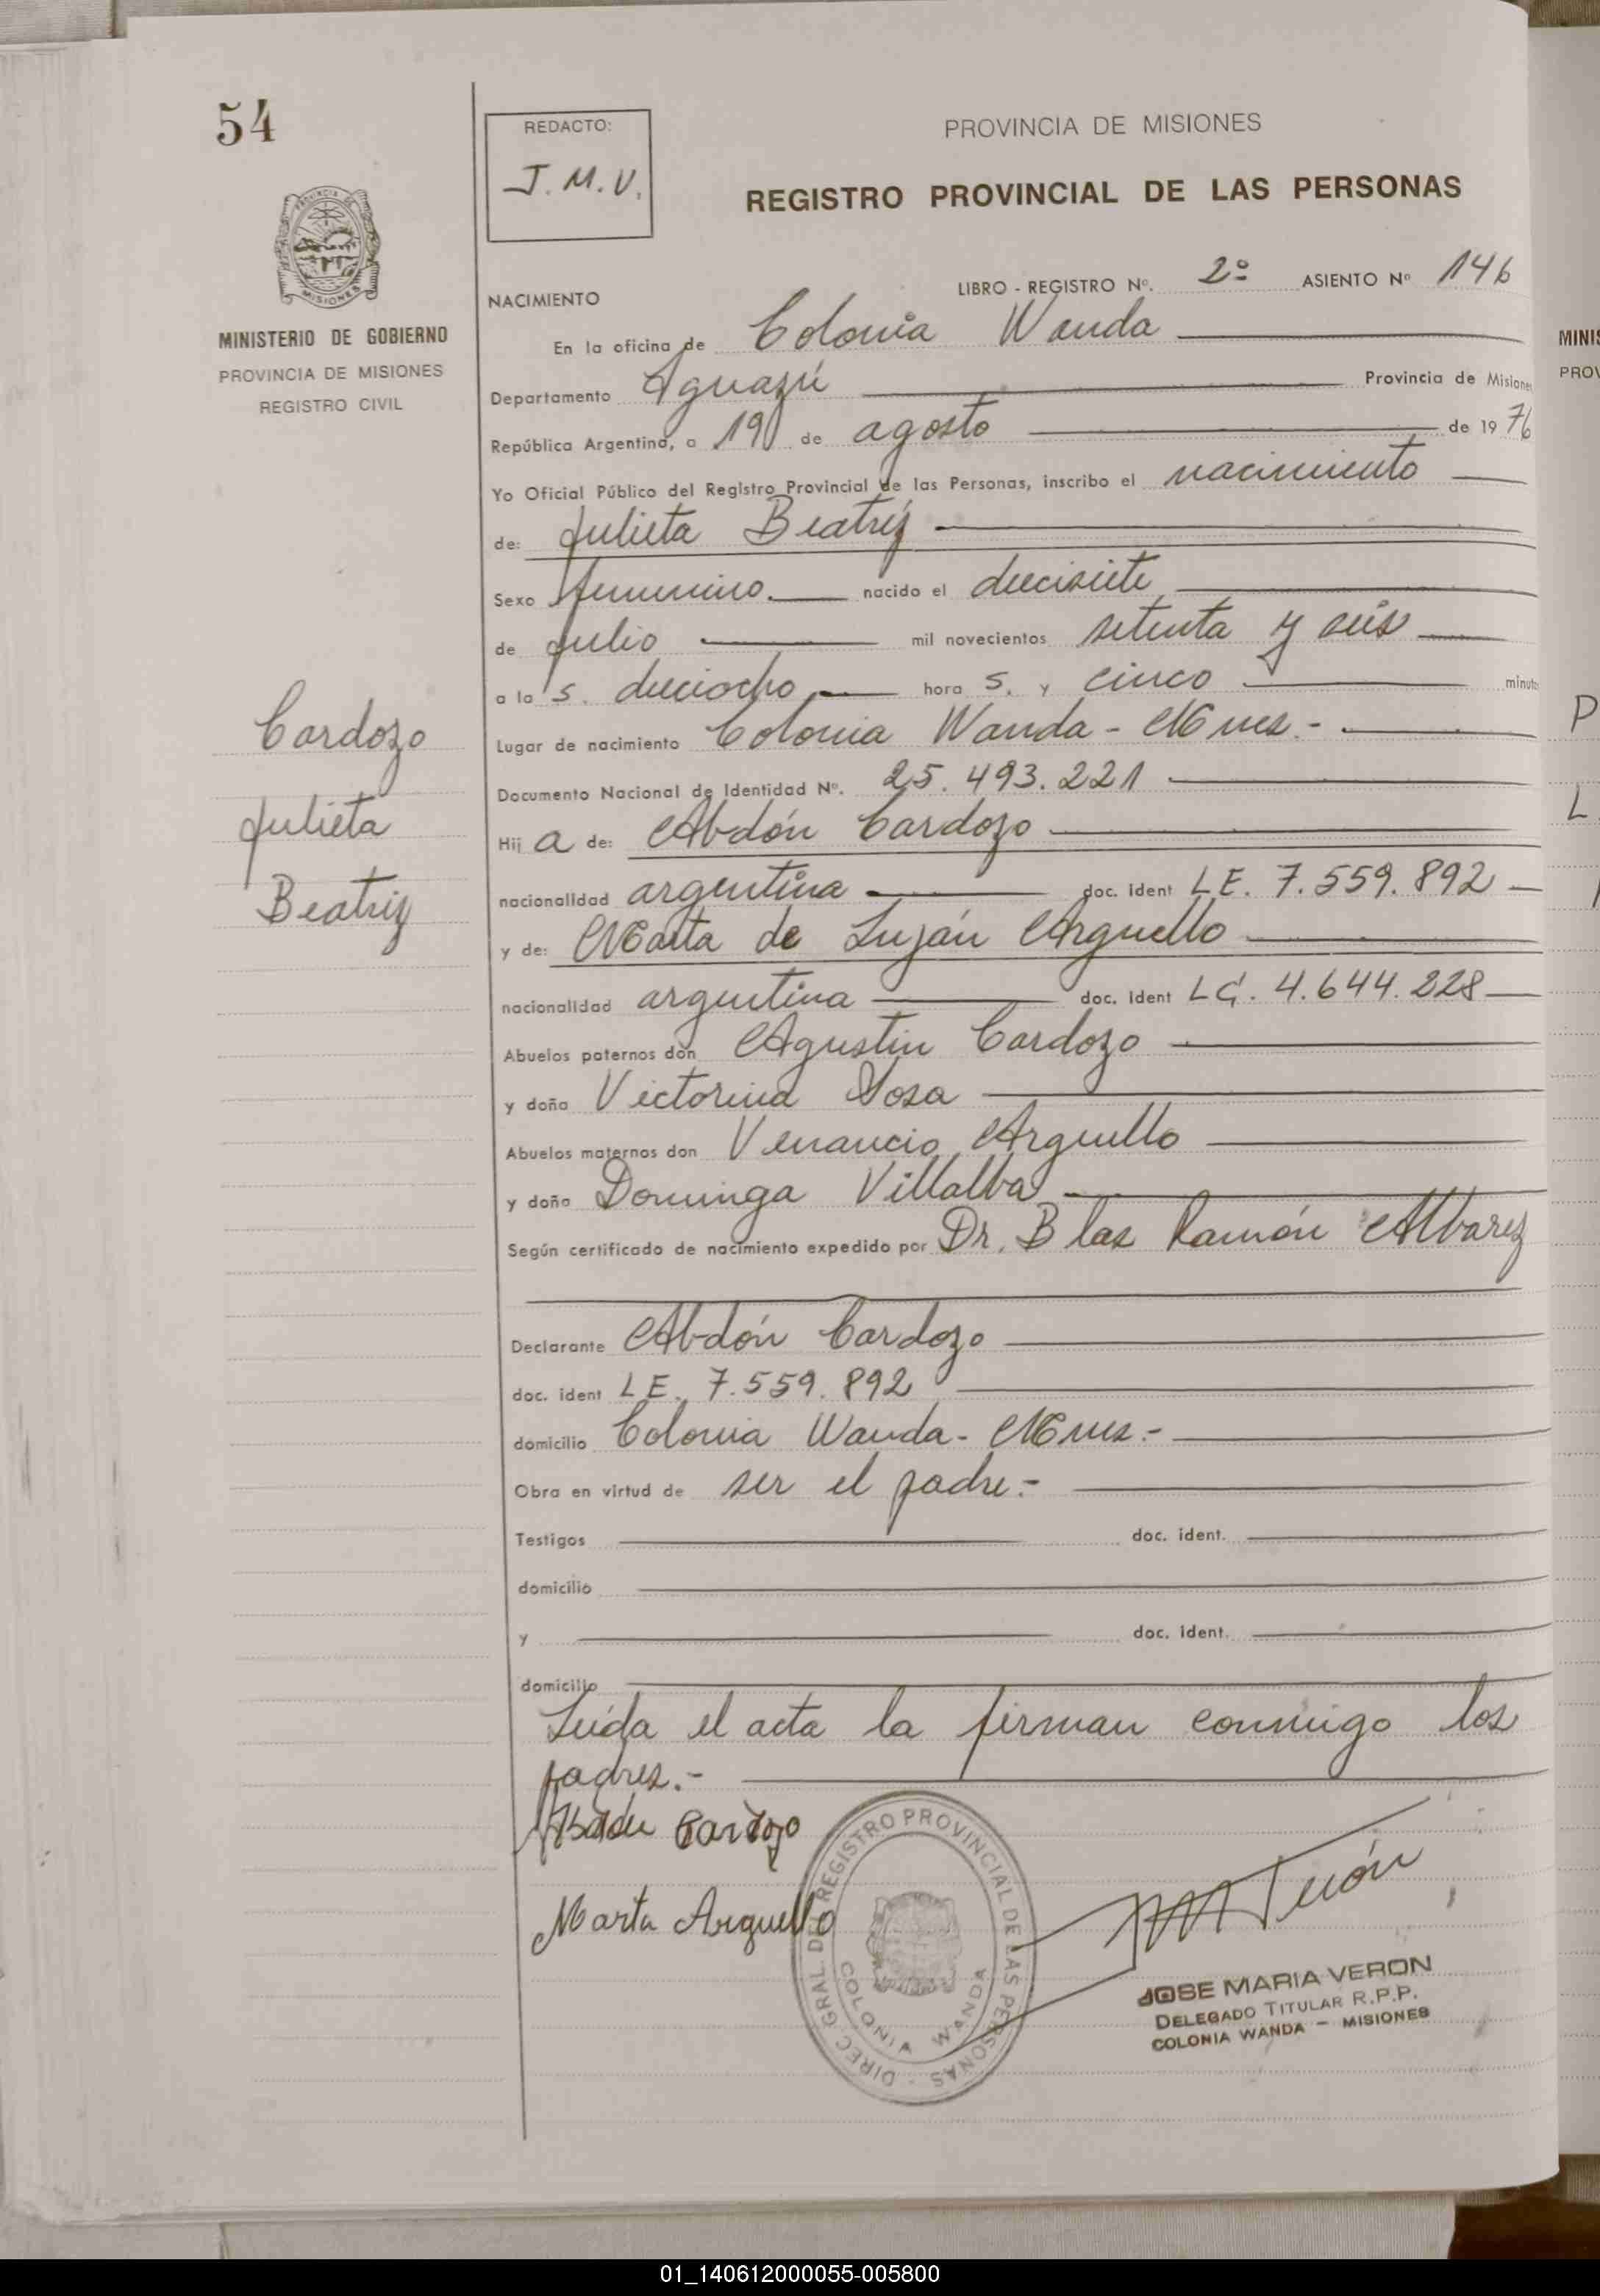 54
REDACTO:
J. M. V.
PROVINCIA DE MISIONES
REGISTRO PROVINCIAL DE LAS PERSONAS
MISIONES
MINISTERIO DE GOBIERNO
PROVINCIA DE MISIONES
REGISTRO CIVIL
LIBRO - REGISTRO Nº. 2º ASIENTO Nº 146
NACIMIENTO
En la oficina de Colonia Wanda
Departamento Iguazú Provincia de Misiones
República Argentina, a 19 de agosto de 1976
Yo Oficial Público del Registro Provincial de las Personas, inscribo el nacimiento
de: Julieta Beatriz
Sexo femenino. nacido el diecisiete
de julio mil novecientos setenta y seis
a la s. dieciocho hora s. y cinco minuto
Lugar de nacimiento Colonia Wanda - Mnes.-
Documento Nacional de Identidad Nº. 25.493.221
Hij a de: Abdón Cardozo
nacionalidad argentina doc. ident LE. 7.559.892
y de: Marta de Luján Arguello
nacionalidad argentina doc. ident LC. 4.644.228
Abuelos paternos don Agustin Cardozo
y doña Victorina Sosa
Abuelos maternos don Venancio Arguello
y doña Dominga Villalba
Según certificado de nacimiento expedido por Dr. Blas Ramón Albarez
Declarante Abdón Cardozo
doc. ident LE. 7.559.892
domicilio Colonia Wanda - Mnes.-
Obra en virtud de ser el padre.-
Testigos doc. ident.
domicilio
y doc. ident.
domicilio
Leída el acta la firman conmigo los
padres.-
Cardozo
Julieta
Beatriz
Abdon Cardozo
Marta Arguello
DIREC. GRAL. DEL REGISTRO PROVINCIAL DE LAS PERSONAS
COLONIA WANDA
JOSE MARIA VERON
DELEGADO TITULAR R.P.P.
COLONIA WANDA - MISIONES
MINIS
PROV
P
L
01_140612000055-005800